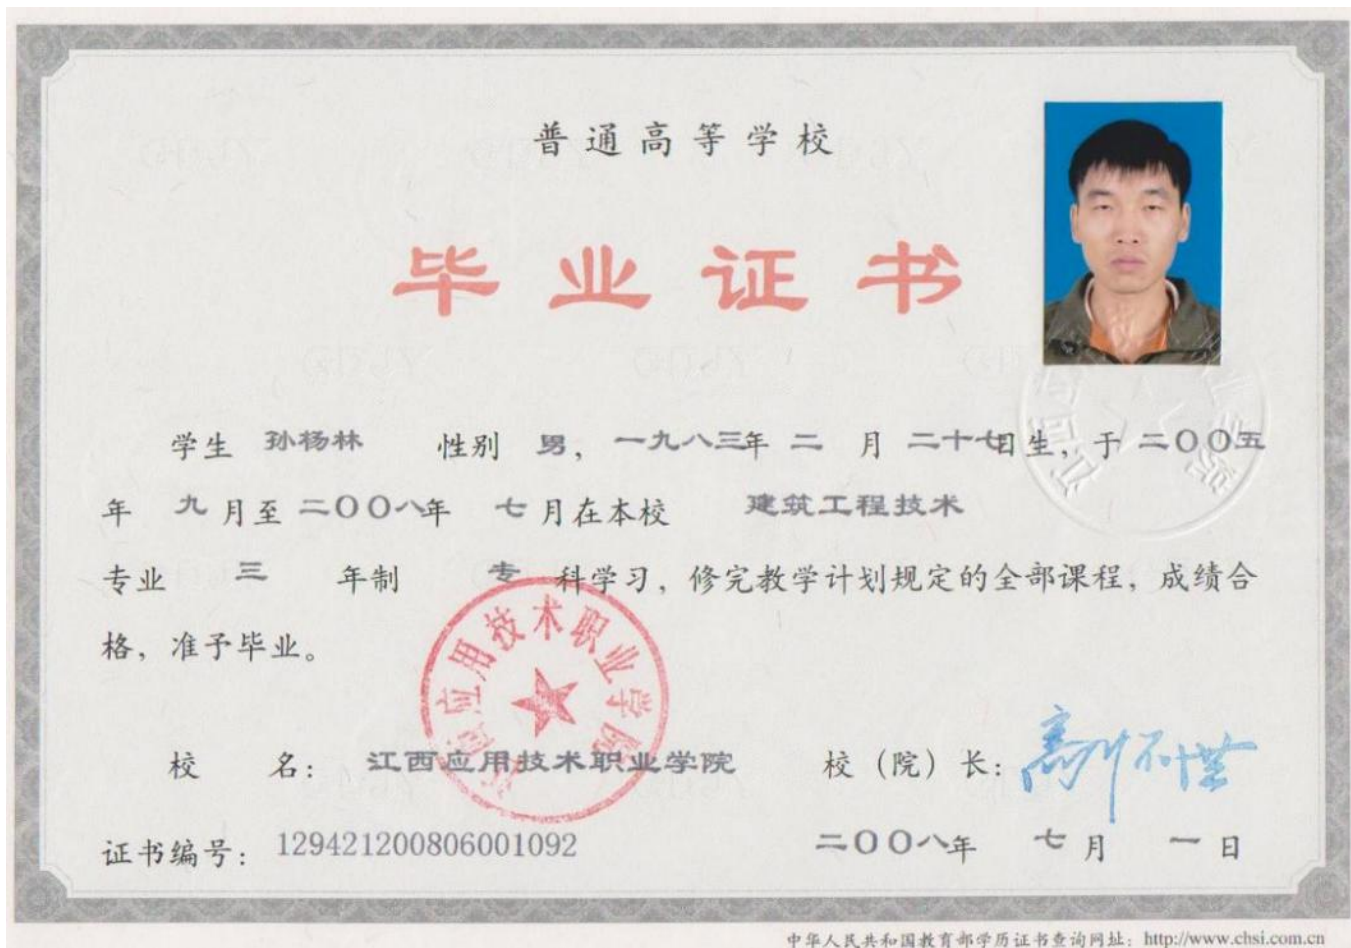 普通高等学校
毕业证书
学生 孙杨林 性别 男，一九八三年 二 月 二十七日生，于 二〇〇五
年 九 月至 二〇〇八年 七 月在本校 建筑工程技术
专业 三 年制 专 科学习，修完教学计划规定的全部课程，成绩合
格，准予毕业。
江西应用技术职业学院
校 名：江西应用技术职业学院 校（院）长：
证书编号：129421200806001092 二〇〇八年 七 月 一 日
中华人民共和国教育部学历证书查询网址：http://www.chsi.com.cn